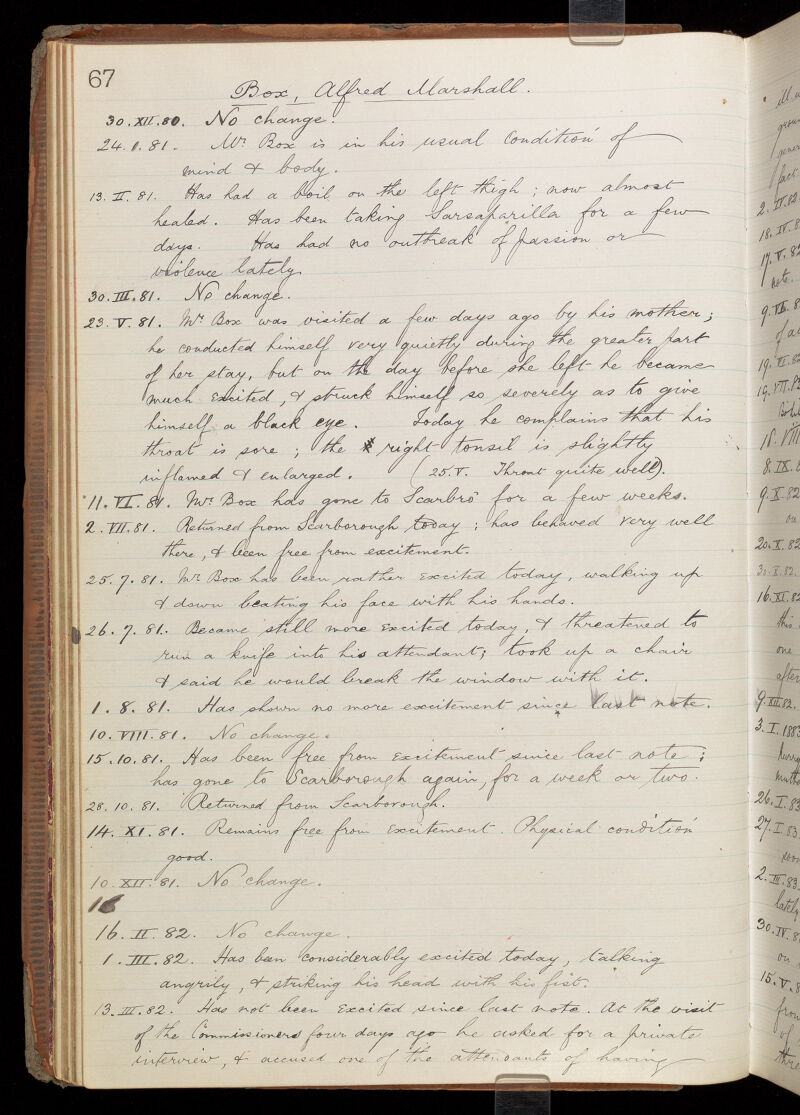 67
Box, Alfred Marshall.
30.XII.80. No change.
24.1.81. Mr. Box is in his usual condition of
mind & body.
13.II.81. Has had a boil on the left thigh; now almost
healed. Has been taking Sarsaparilla for a few
days. Has had no outbreak of passion or
violence lately.
30.III.81. No change.
23.V.81. Mr. Box was visited a few days ago by his mother;
he conducted himself very quietly during the greater part
of her stay, but on the day before she left he became
much excited, & struck himself so severely as to give
himself a black eye. Today he complains that his
throat is sore; the right tonsil is slightly
inflamed & enlarged. (25.V. Throat quite well).
11.VI.81. Mr. Box has gone to Scarbro' for a few weeks.
2.VII.81. Returned from Scarborough today; has behaved very well
there, & been free from excitement.
25.7.81. Mr. Box has been rather excited today, walking up
& down beating his face with his hands.
26.7.81. Became still more excited today, & threatened to
run a knife into his attendant; took up a chair
& said he would break the window with it.
1.8.81. Has shown no more excitement since last note.
10.VIII.81. No change.
15.10.81. Has been free from excitement since last note;
has gone to Scarborough again, for a week or two.
28.10.81. Returned from Scarborough.
14.XI.81. Remains free from excitement. Physical condition
good.
10.XII.81. No change.
16
16.II.82. No change.
1.III.82. Has been considerably excited today, talking
angrily, & striking his head with his fist.
13.III.82. Has not been excited since last note. At the visit
of the Commissioners four days ago he asked for a private
interview, & accused one of the attendants of having